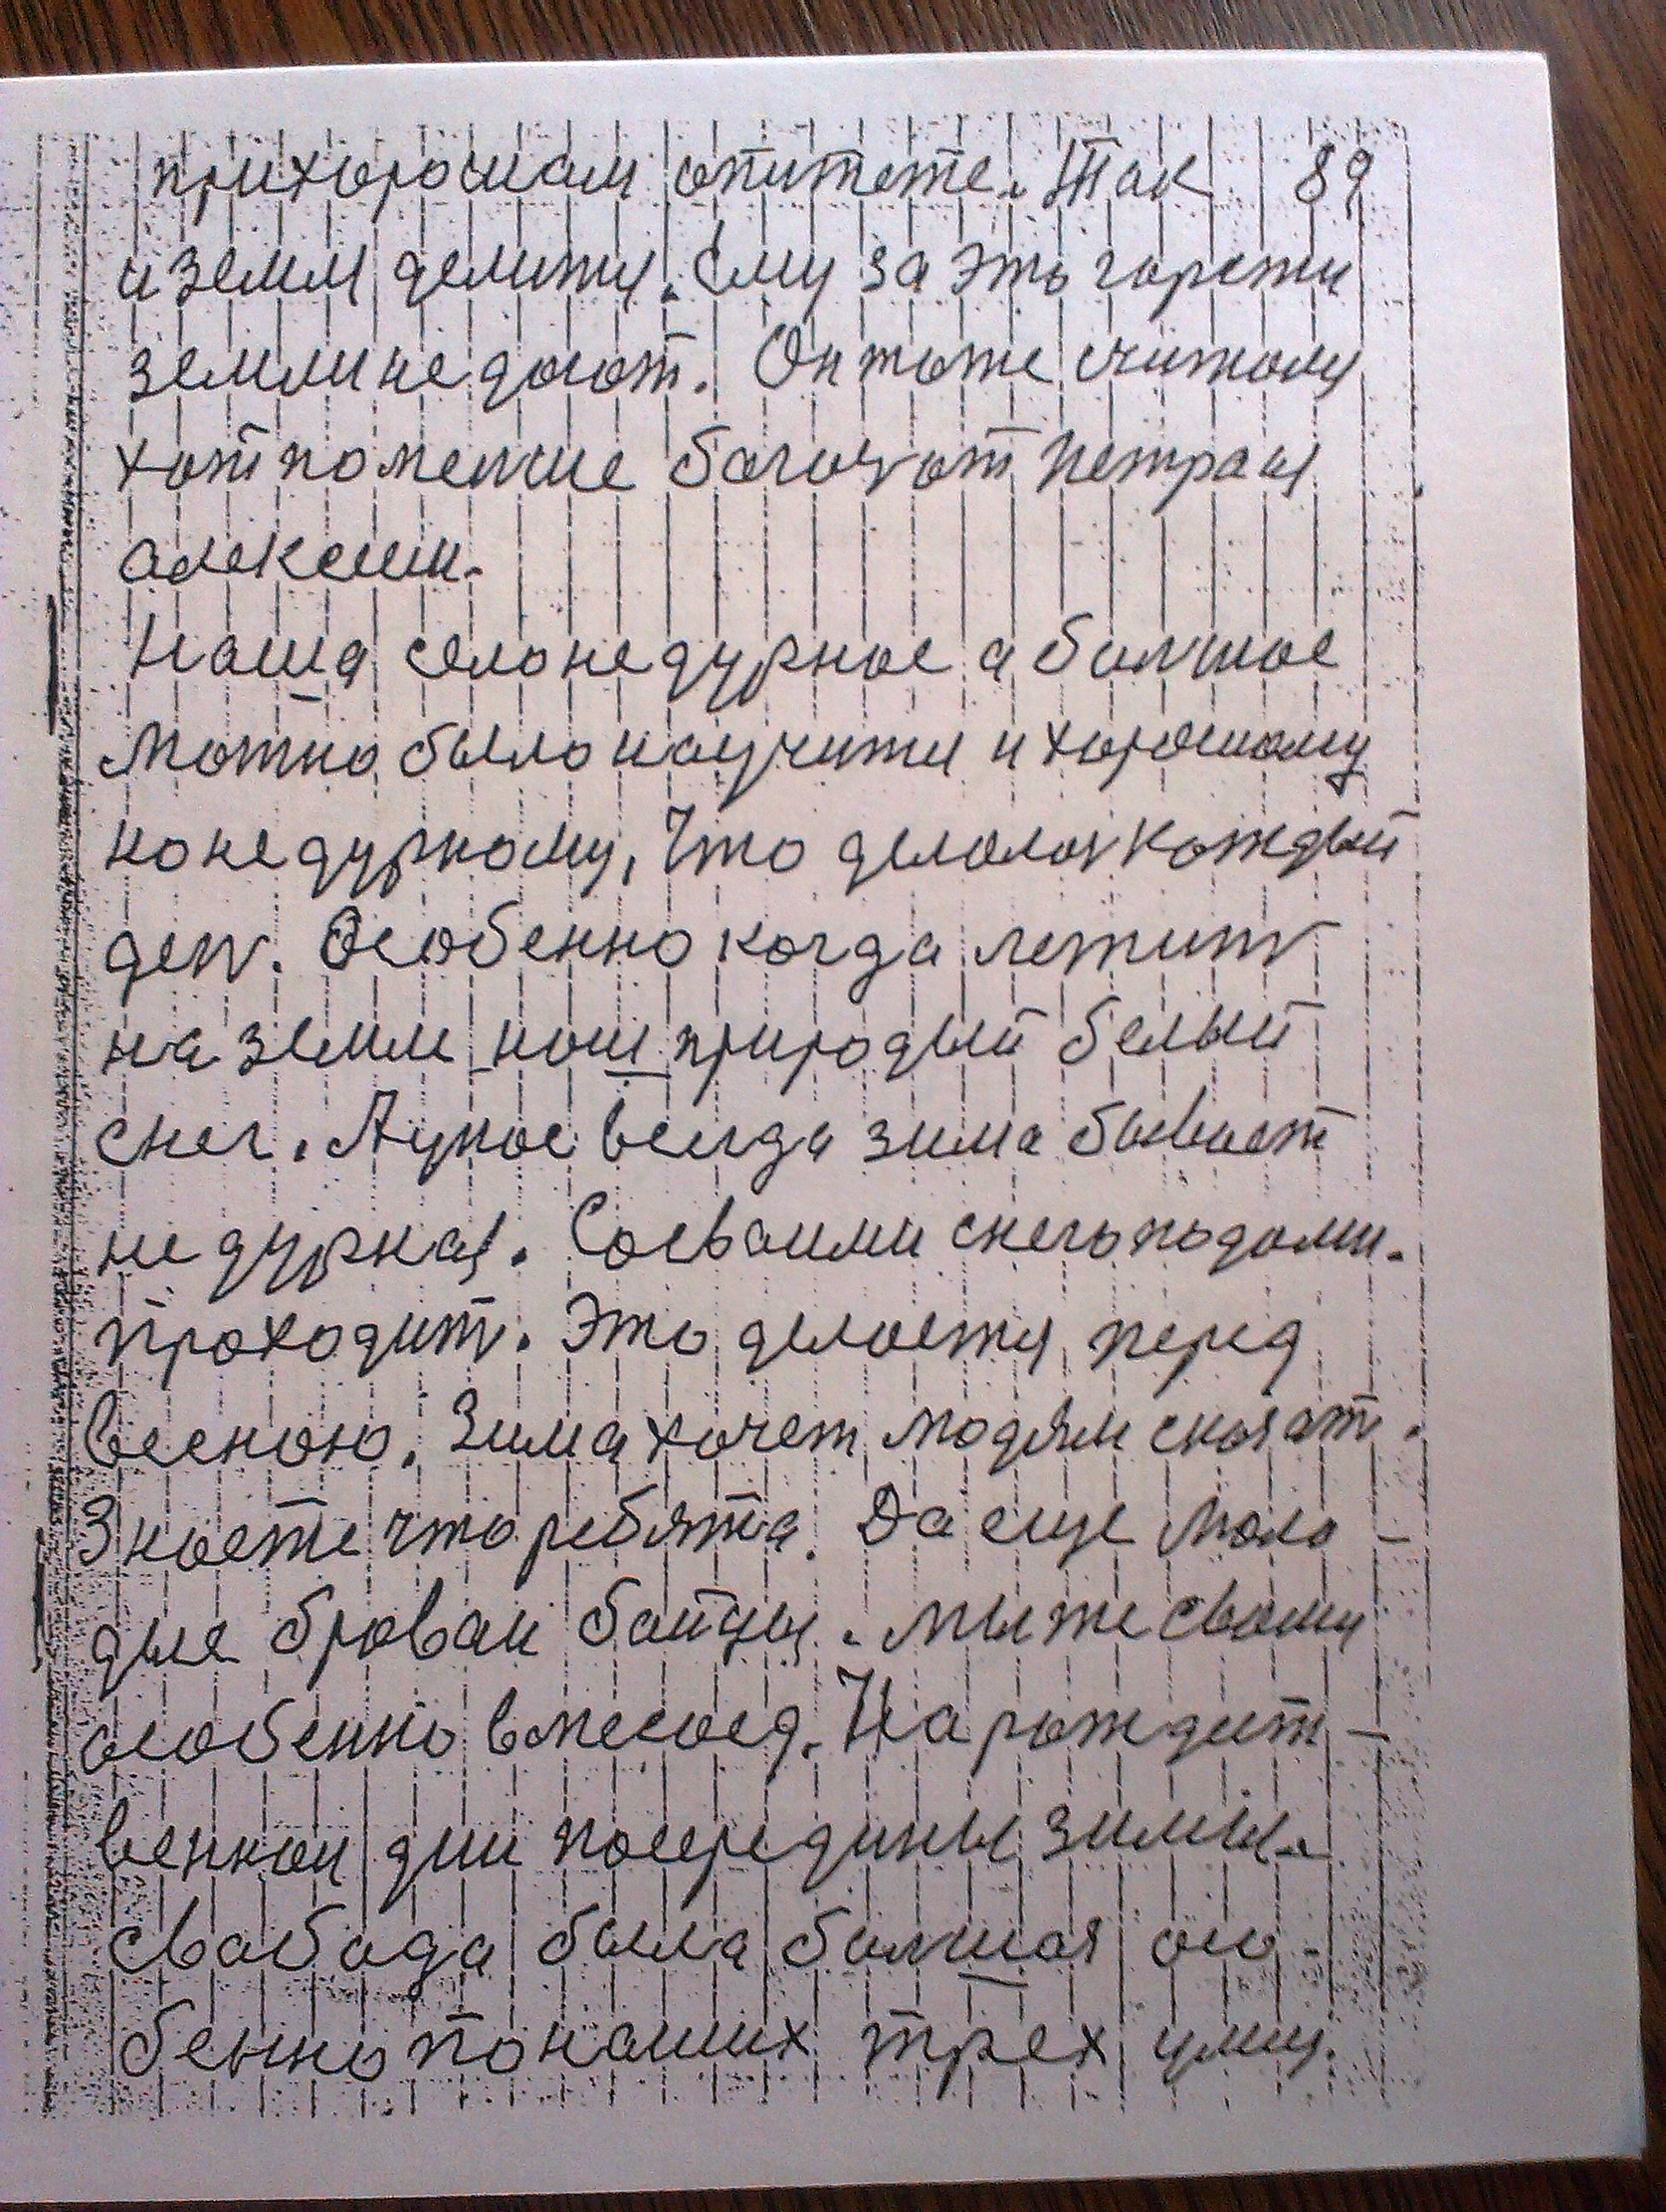 прихорошам опитете. Так 89
и земли делитя. Ему за это горсти
земли не дают. Он тоже считаля
хот поменше богач от Петра и
алексии.
Наша село не дурное а болшое
Можно было научитя и хорошому
но не дурному, Что делалос каждый
ден. Особенно когда летить
на земли наш природый белый
снег. А у нас всегда зима бывает
не дурная. Со сваими снегопадами.
проходить. Это делается перед
Весною. Зима хочет людям сказат.
Знаете что ребята. Да еще моло-
дые браваи байцы. Мы же сваму
особенно в месоед. На рождит-
венкои дни посередины зимы.
Свабода была болшая осо
бенно по наших трех улиц.